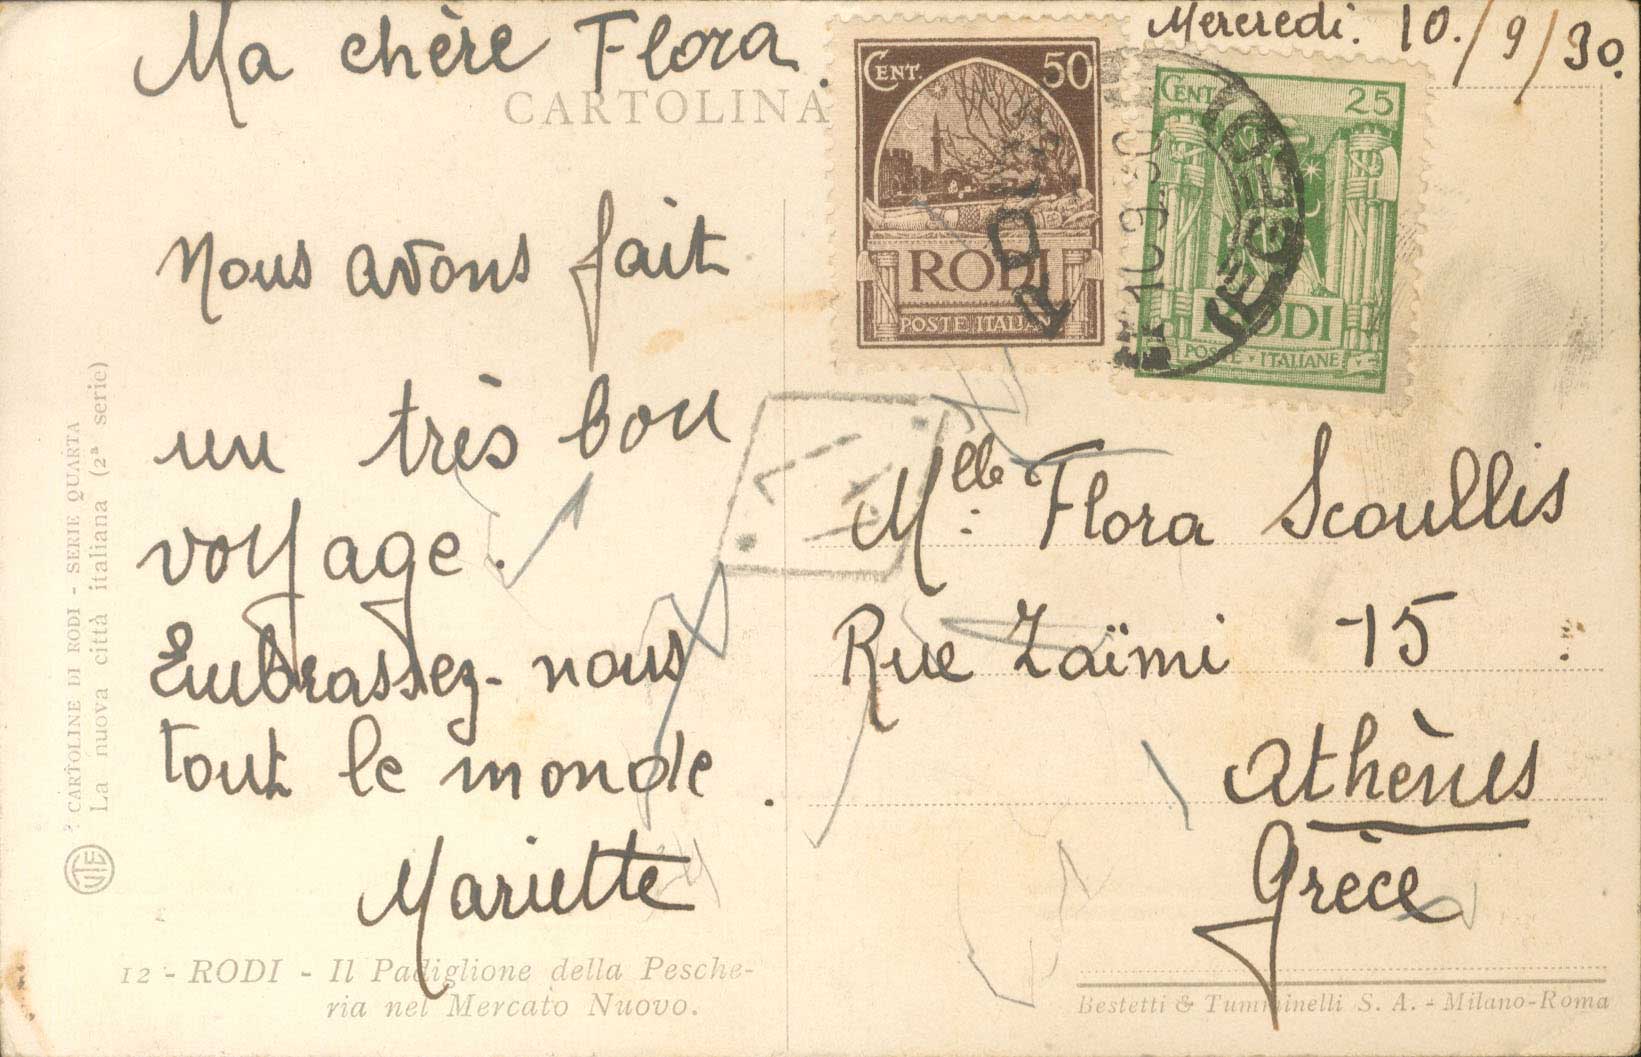 Mercredi. 10./9/30.
Ma chère Flora.
CARTOLINA
CENT. 50
RODI
POSTE ITALIANE
CENT 25
RODI
POSTE ITALIANE
RODI
10 9 30
EGEO
Nous avons fait
un très bon
voyage.
Embrassez-nous
tout le monde.
Mariette
Mlle Flora Scoullis
Rue Zaïmi 15
Athènes
Grèce
CARTOLINE DI RODI - SERIE QUARTA
La nuova città italiana (2ª serie)
12 - RODI - Il Padiglione della Pesche-
ria nel Mercato Nuovo.
Bestetti & Tumminelli S. A. - Milano-Roma